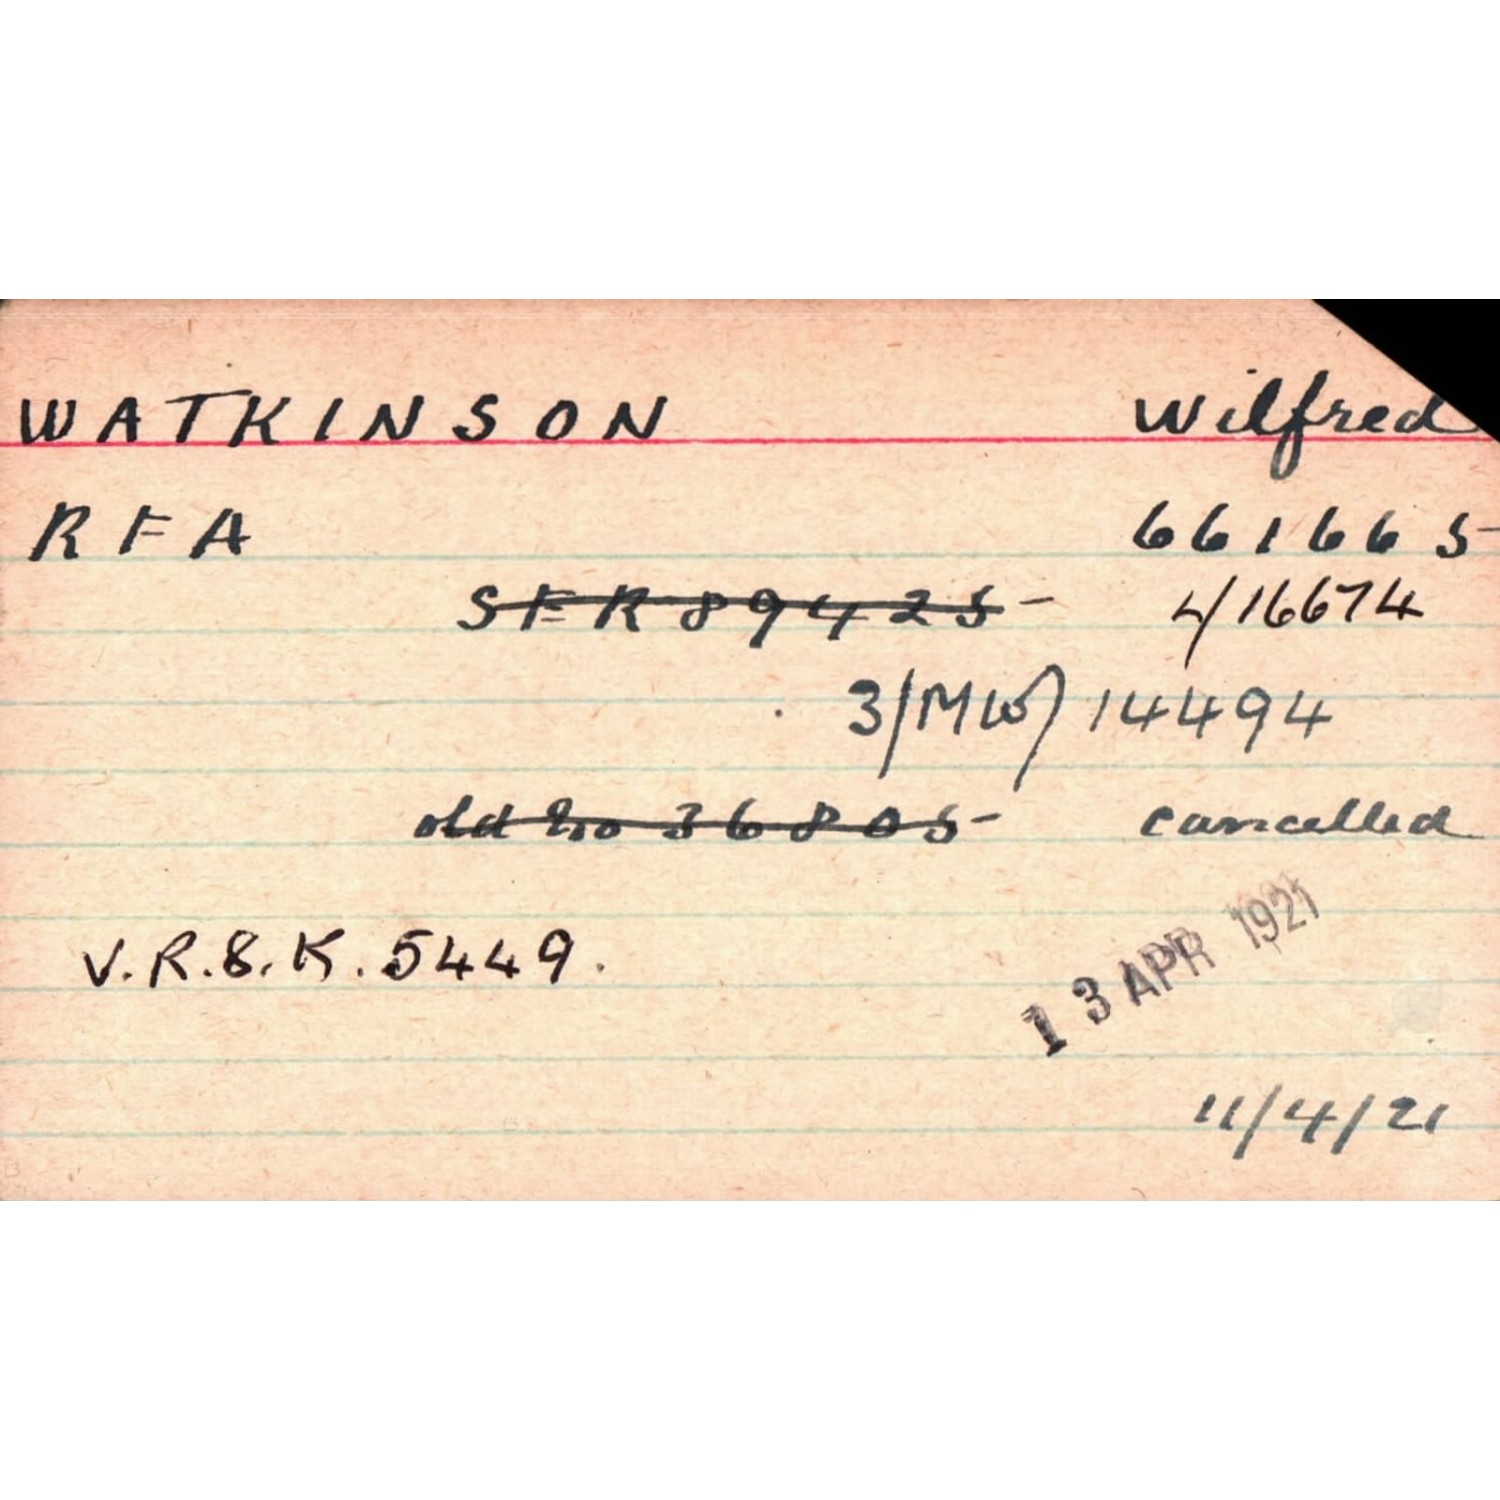 WATKINSON Wilfred
RFA 661665
SFR 89425 4/16674
3/MW/14494
old No 36805 cancelled
V.R.8.K.5449.
13 APR 1921
11/4/21